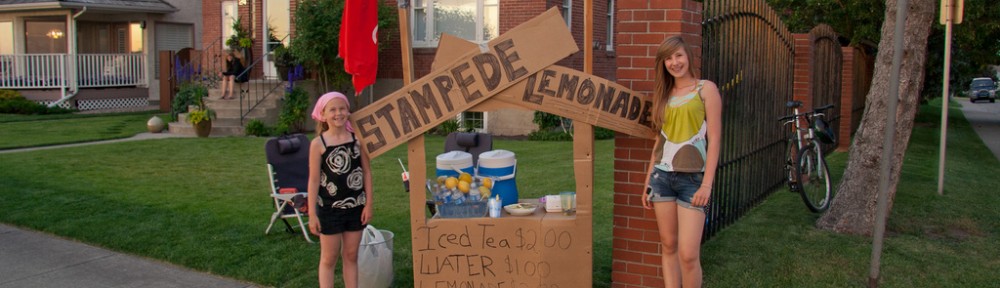 STAMPEDE
LEMONADE
Iced Tea $2.00
WATER $1.00
LEMONADE